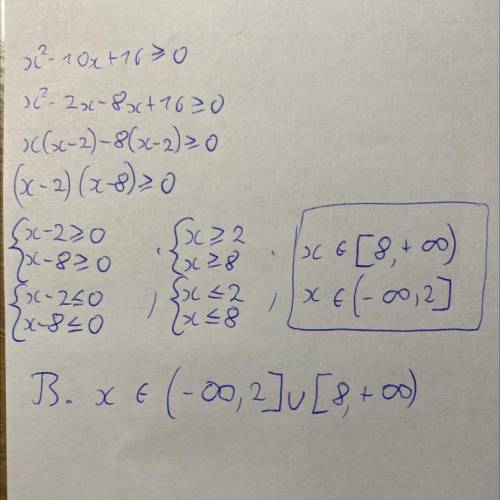 x² - 10x + 16 ≥ 0
x² - 2x - 8x + 16 ≥ 0
x(x-2) - 8(x-2) ≥ 0
(x-2)(x-8) ≥ 0
{x-2 ≥ 0 . {x ≥ 2 . x ∈ [8, +∞)
{x-8 ≥ 0 {x ≥ 8
{x-2 ≤ 0 , {x ≤ 2 , x ∈ (-∞, 2]
{x-8 ≤ 0 {x ≤ 8
B. x ∈ (-∞, 2] ∪ [8, +∞)